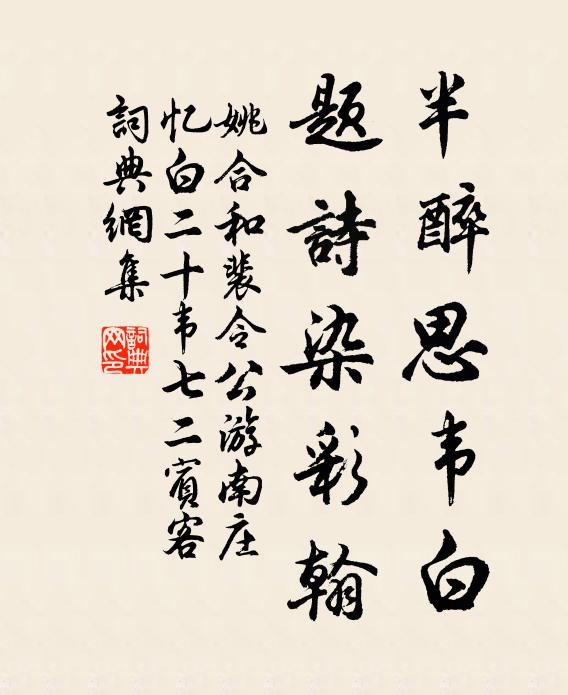 半醉思韦白
题詩染彩翰
姚合和裴令公游南庄
忆白二十韦七二賓客
詞典網集
詞典网印